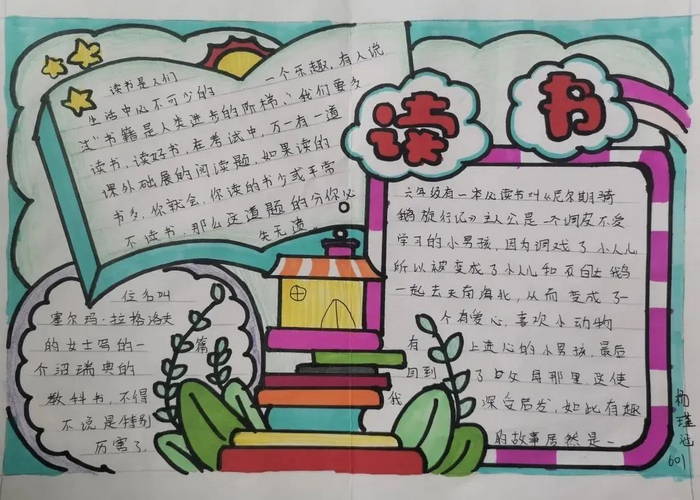 读书
读书是人们
一个乐趣,有人说
生活中必不可少的
过“书籍是人类进步的阶梯、”我们要多
读书,读好书,在考试中,万一有一道
课外拓展的阅读题,如果读的
书多,你就会,你读的书少或平常
不读书,那么这道题的分你必
失无遗
六年级有一本必读书叫《尼尔斯骑
鹅旅行记》主人公是一个调皮不爱
学习的小男孩,因为调戏了小人儿
所以被变成了小人儿和
鹅
一起去天南海北,从而变成了一
个有爱心,喜欢小动物
有上进心的小男孩最后
回到了父母那里这使
我深受启发,如此有趣
的故事居然是一
位名叫
塞尔玛·拉格洛夫
的女士写的一篇
个沼瑞典的
教科书,不得
不说是特别
厉害了
杨
601